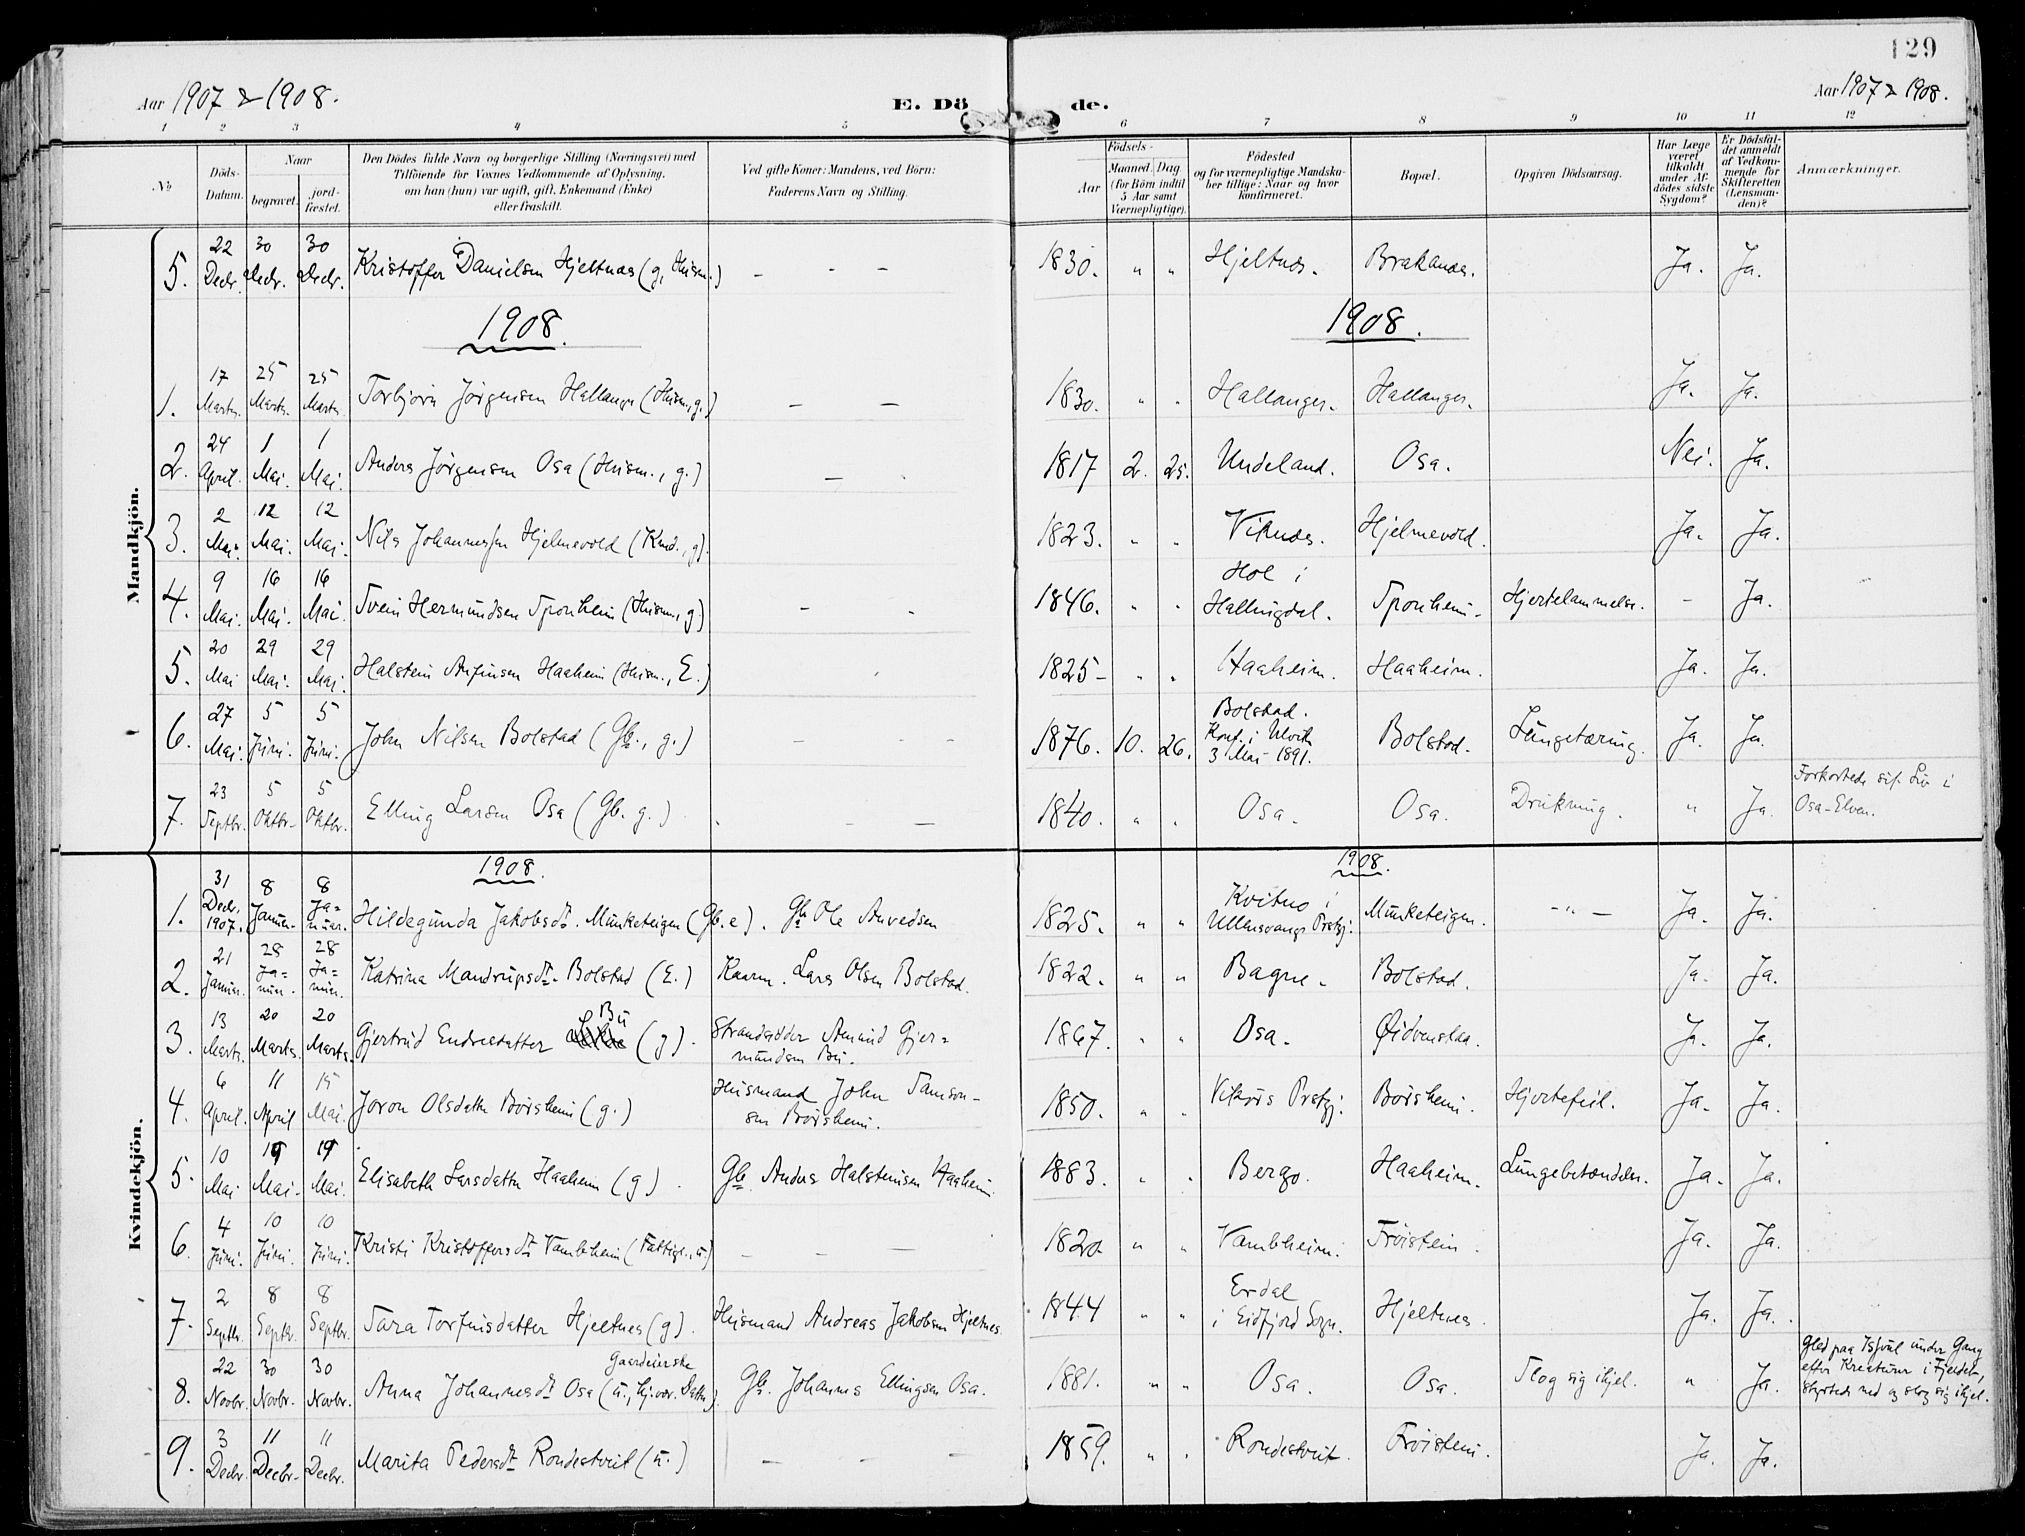 129
Aar 1907 & 1908.
E. Dö de.
Aar 1907 & 1908.
1 2 3 4 5 6 7 8 9 10 11 12
No
Döds-Datum.
Naar
begravet.
jord-fæstet.
Den Dödes fulde Navn og borgerlige Stilling (Næringsvei) med
Tilföiende for Voxnes Vedkommende af Oplysning,
om han (hun) var ugift, gift, Enkemand (Enke)
eller fraskilt.
Ved gifte Koner: Mandens, ved Börn:
Faderens Navn og Stilling.
Födsels-
Aar
Maaned. Dag
(for Börn indtil
5 Aar samt
Værnepligtige).
Födested
og for værnepligtige Mandska-
ber tillige: Naar og hvor
konfirmeret.
Bopæl.
Opgiven Dödsaarsag.
Har Læge
været
tilkaldt
under Af-
dödes sidste
Sygdom?
Er Dödsfal-
det anmeldt
af Vedkom-
mende for
Skifteretten
(Lensman-
den)?
Anmærkninger.
Mandkjön.
5. 22 Decbr. 30 Decbr. 30 Decbr. Kristoffer Danielsen Hjeltnæs (g, Husm.) - - - 1830. " " Hjeltnæs. Brakanæs. Ja. Ja.
1908. 1908.
1. 17 Marts. 25 Marts. 25 Marts. Torbjørn Jørgensen Hallanger (Husm., g.) - - 1830. " " Hallanger. Hallanger. Ja. Ja.
2. 24 April. 1 Mai. 1 Mai. Anders Jørgensen Osa (Husm., g.) - 1817 2. 25. Undeland. Osa. Nei. Ja.
3. 2 Mai. 12 Mai. 12 Mai. Nils Johannessen Hjelmevold (Kmd., g). 1823. " " Viknæs. Hjelmevold. Ja. Ja.
4. 9 Mai. 16 Mai. 16 Mai. Svein Hermundsen Sponheim (Husm., g) - 1846. " " Hol i Hallingdal. Sponheim. Hjertelammelse. - Ja.
5. 20 Mai 29 Mai. 29 Mai. Halstein Anfinsen Haaheim (Husm., E.) 1825 - " " Haaheim. Haaheim. Ja. Ja.
6. 27 Mai. 5 Juni. 5 Juni. John Nilsen Bolstad (Gb., g.) - - - 1876. 10. 26. Bolstad. Konf. i Ulvik 3 Mai 1891. Bolstad. Lungetæring. Ja. Ja.
7. 23 Septbr. 5 Oktbr. 5 Oktbr. Elling Larsen Osa (Gb. g.) - - 1840. " " Osa. Osa. Drukning. " Ja. Forkortede sit Liv i Osa-Elven.
Kvindekjön.
1908. 1908.
1. 31 Decbr. 1907. 8 Januar. 8 Ja=nuar. Hildegunda Jakobsdt. Munketeigen (Gb. e). Gb Ole Anvedsen 1825. " " Kvitno i Ullensvangs Prstgj. Munketeigen. - " - Ja. Ja.
2. 21 Januar. 28 Ja=nuar. 28 Ja=nuar. Katrina Mandrupsdt. Bolstad (E.) Kaarm. Lars Olsen Bolstad. 1822. " " Bagne. Bolstad. Ja. Ja.
3. 13 Marts. 20 Marts. 20 Marts. Gjertrud Endresdatter Bu (g). Strandsidder Amund Gjer=mundsen Bu. 1867. " " Osa. Ja. Ja.
4. 6 April. 11 April 15 Mai. Joron Olsdatter Børsheim (g.) Husmand John Samson-sen Børsheim. 1850. " " Vikørs Prstgj. Børsheim. Hjertefeil. Ja. Ja.
5. 10 Mai 19 Mai. 19 Mai. Elisabeth Larsdatter Haaheim (g). Gb. Anders Halsteinsen Haaheim. 1883. " " Bergo. Haaheim. Lungebetændelse. Ja. Ja.
6. 4 Juni. 10 Juni. 10 Juni. Kristi Kristoffersdt. Vambheim (Fattigl., u) - - - 1820 " " Vambheim. Frøistein. Ja. Ja.
7. 2 Septbr. 8 Septbr. 8 Septbr. Sara Torfinsdatter Hjeltnes (g). Husmand Andreas Jakobsen Hjeltnes. 1844 " " Erdal i Eidfjord Sogn. Hjeltnes. Ja. Ja.
8. 22 Novbr. 30 Novbr. 30 Novbr. Anna Johannesdt Osa (u., hj.vær. Datter) Gaardeierske Gb. Johannes Ellingsen Osa. 1881. " " Osa. Osa. Slog sig ihjel. " Ja. Gled paa Isjvul under Gang efter Kreaturer i Fjeldet, styrtede ned og slog sig ihjel.
9. 3 Decbr. 11 Decbr. 11 Decbr. Marita Pedersdt Rondestveit (u.) - - - 1859. " " Rondestveit. Frøistein. Ja. Ja.